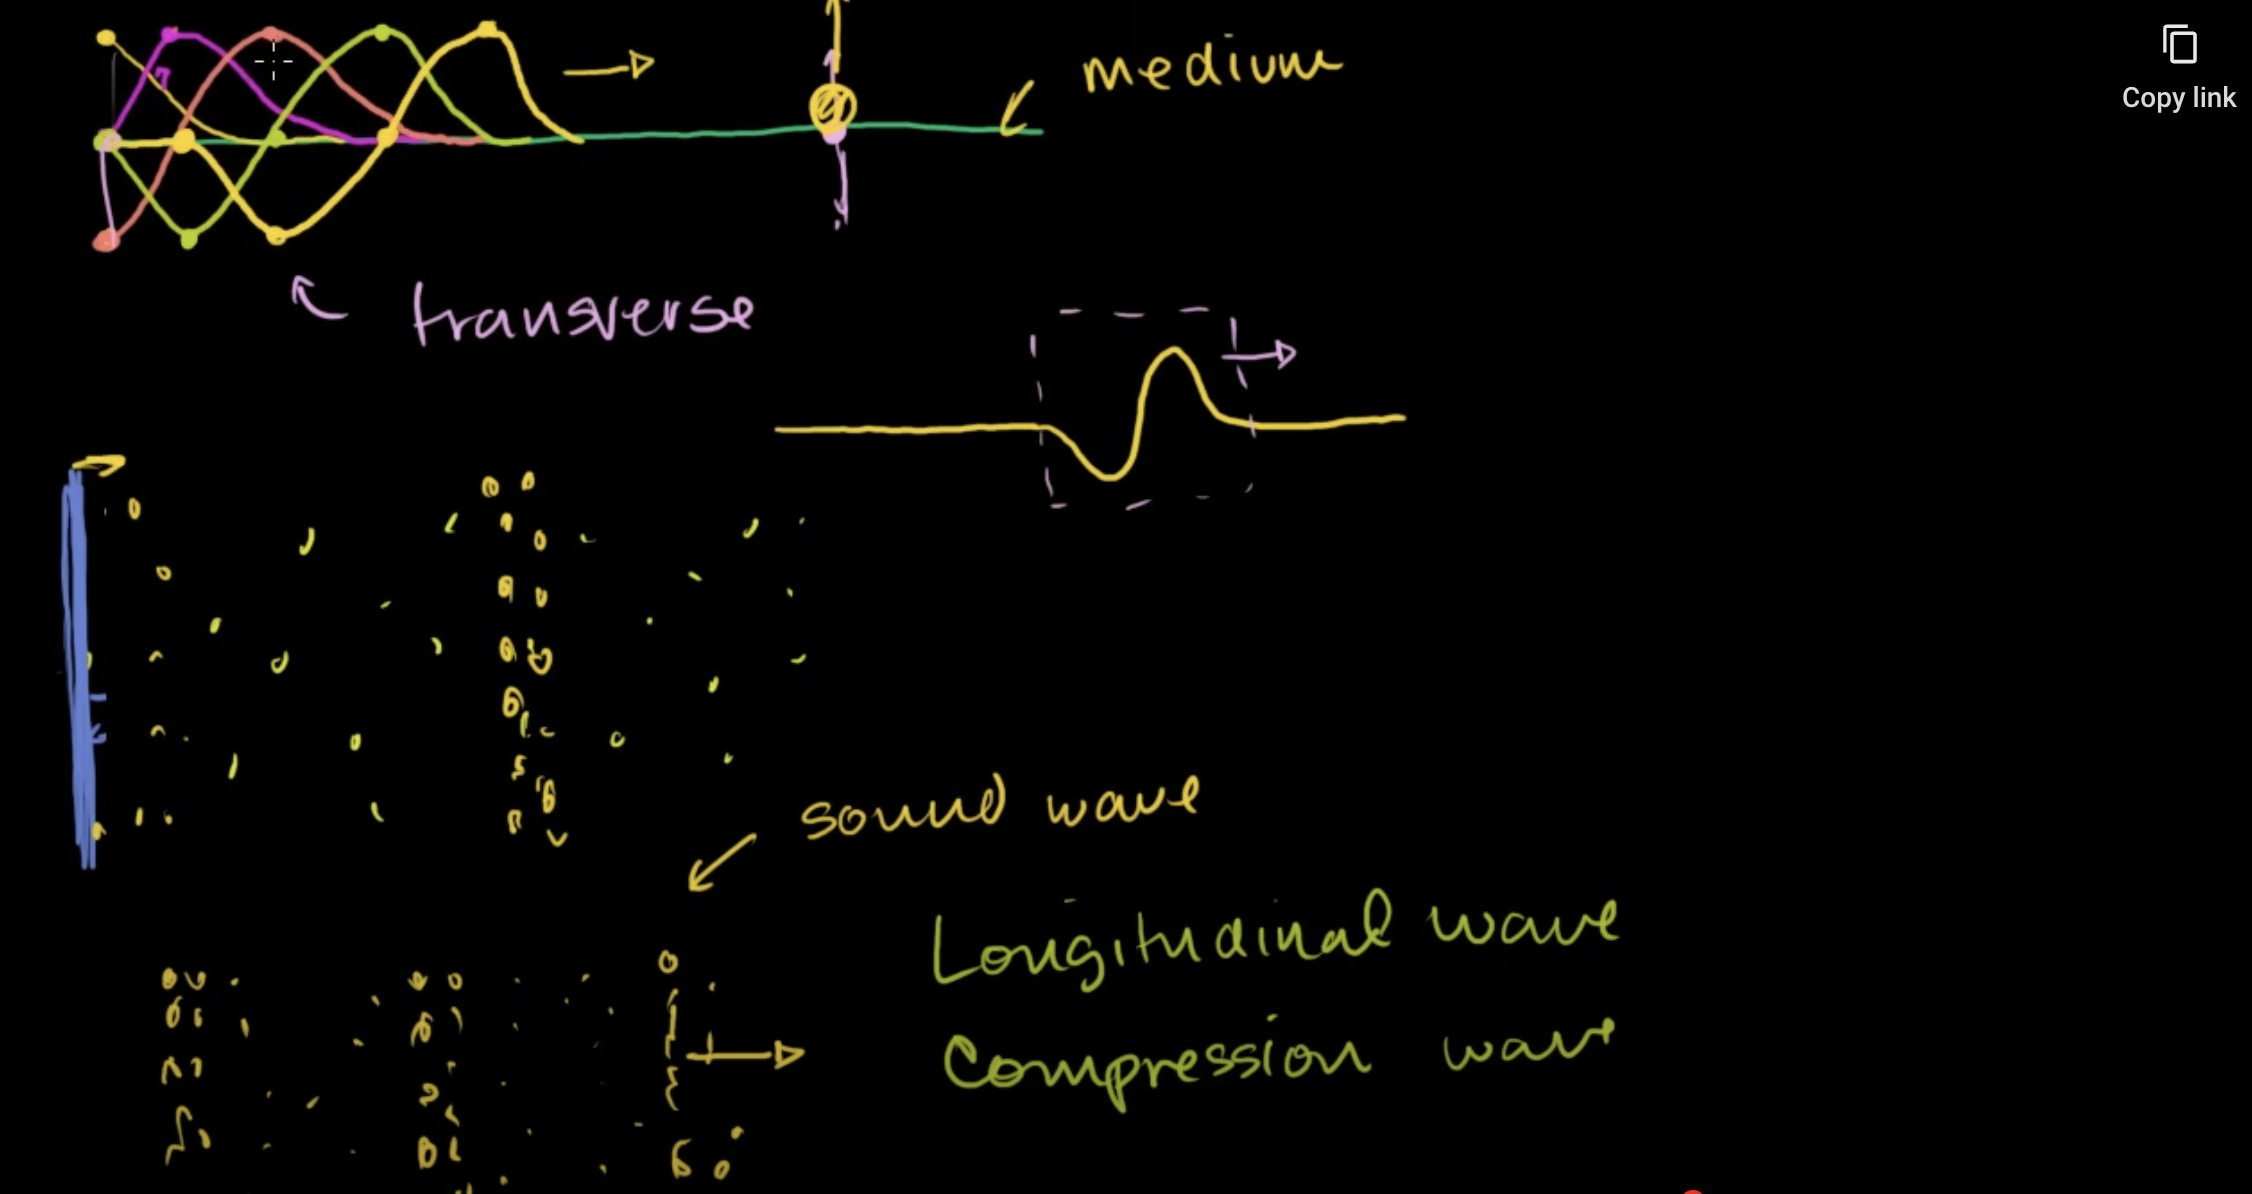 medium
Copy link
transverse
sound wave
Longitudinal wave
Compression wave